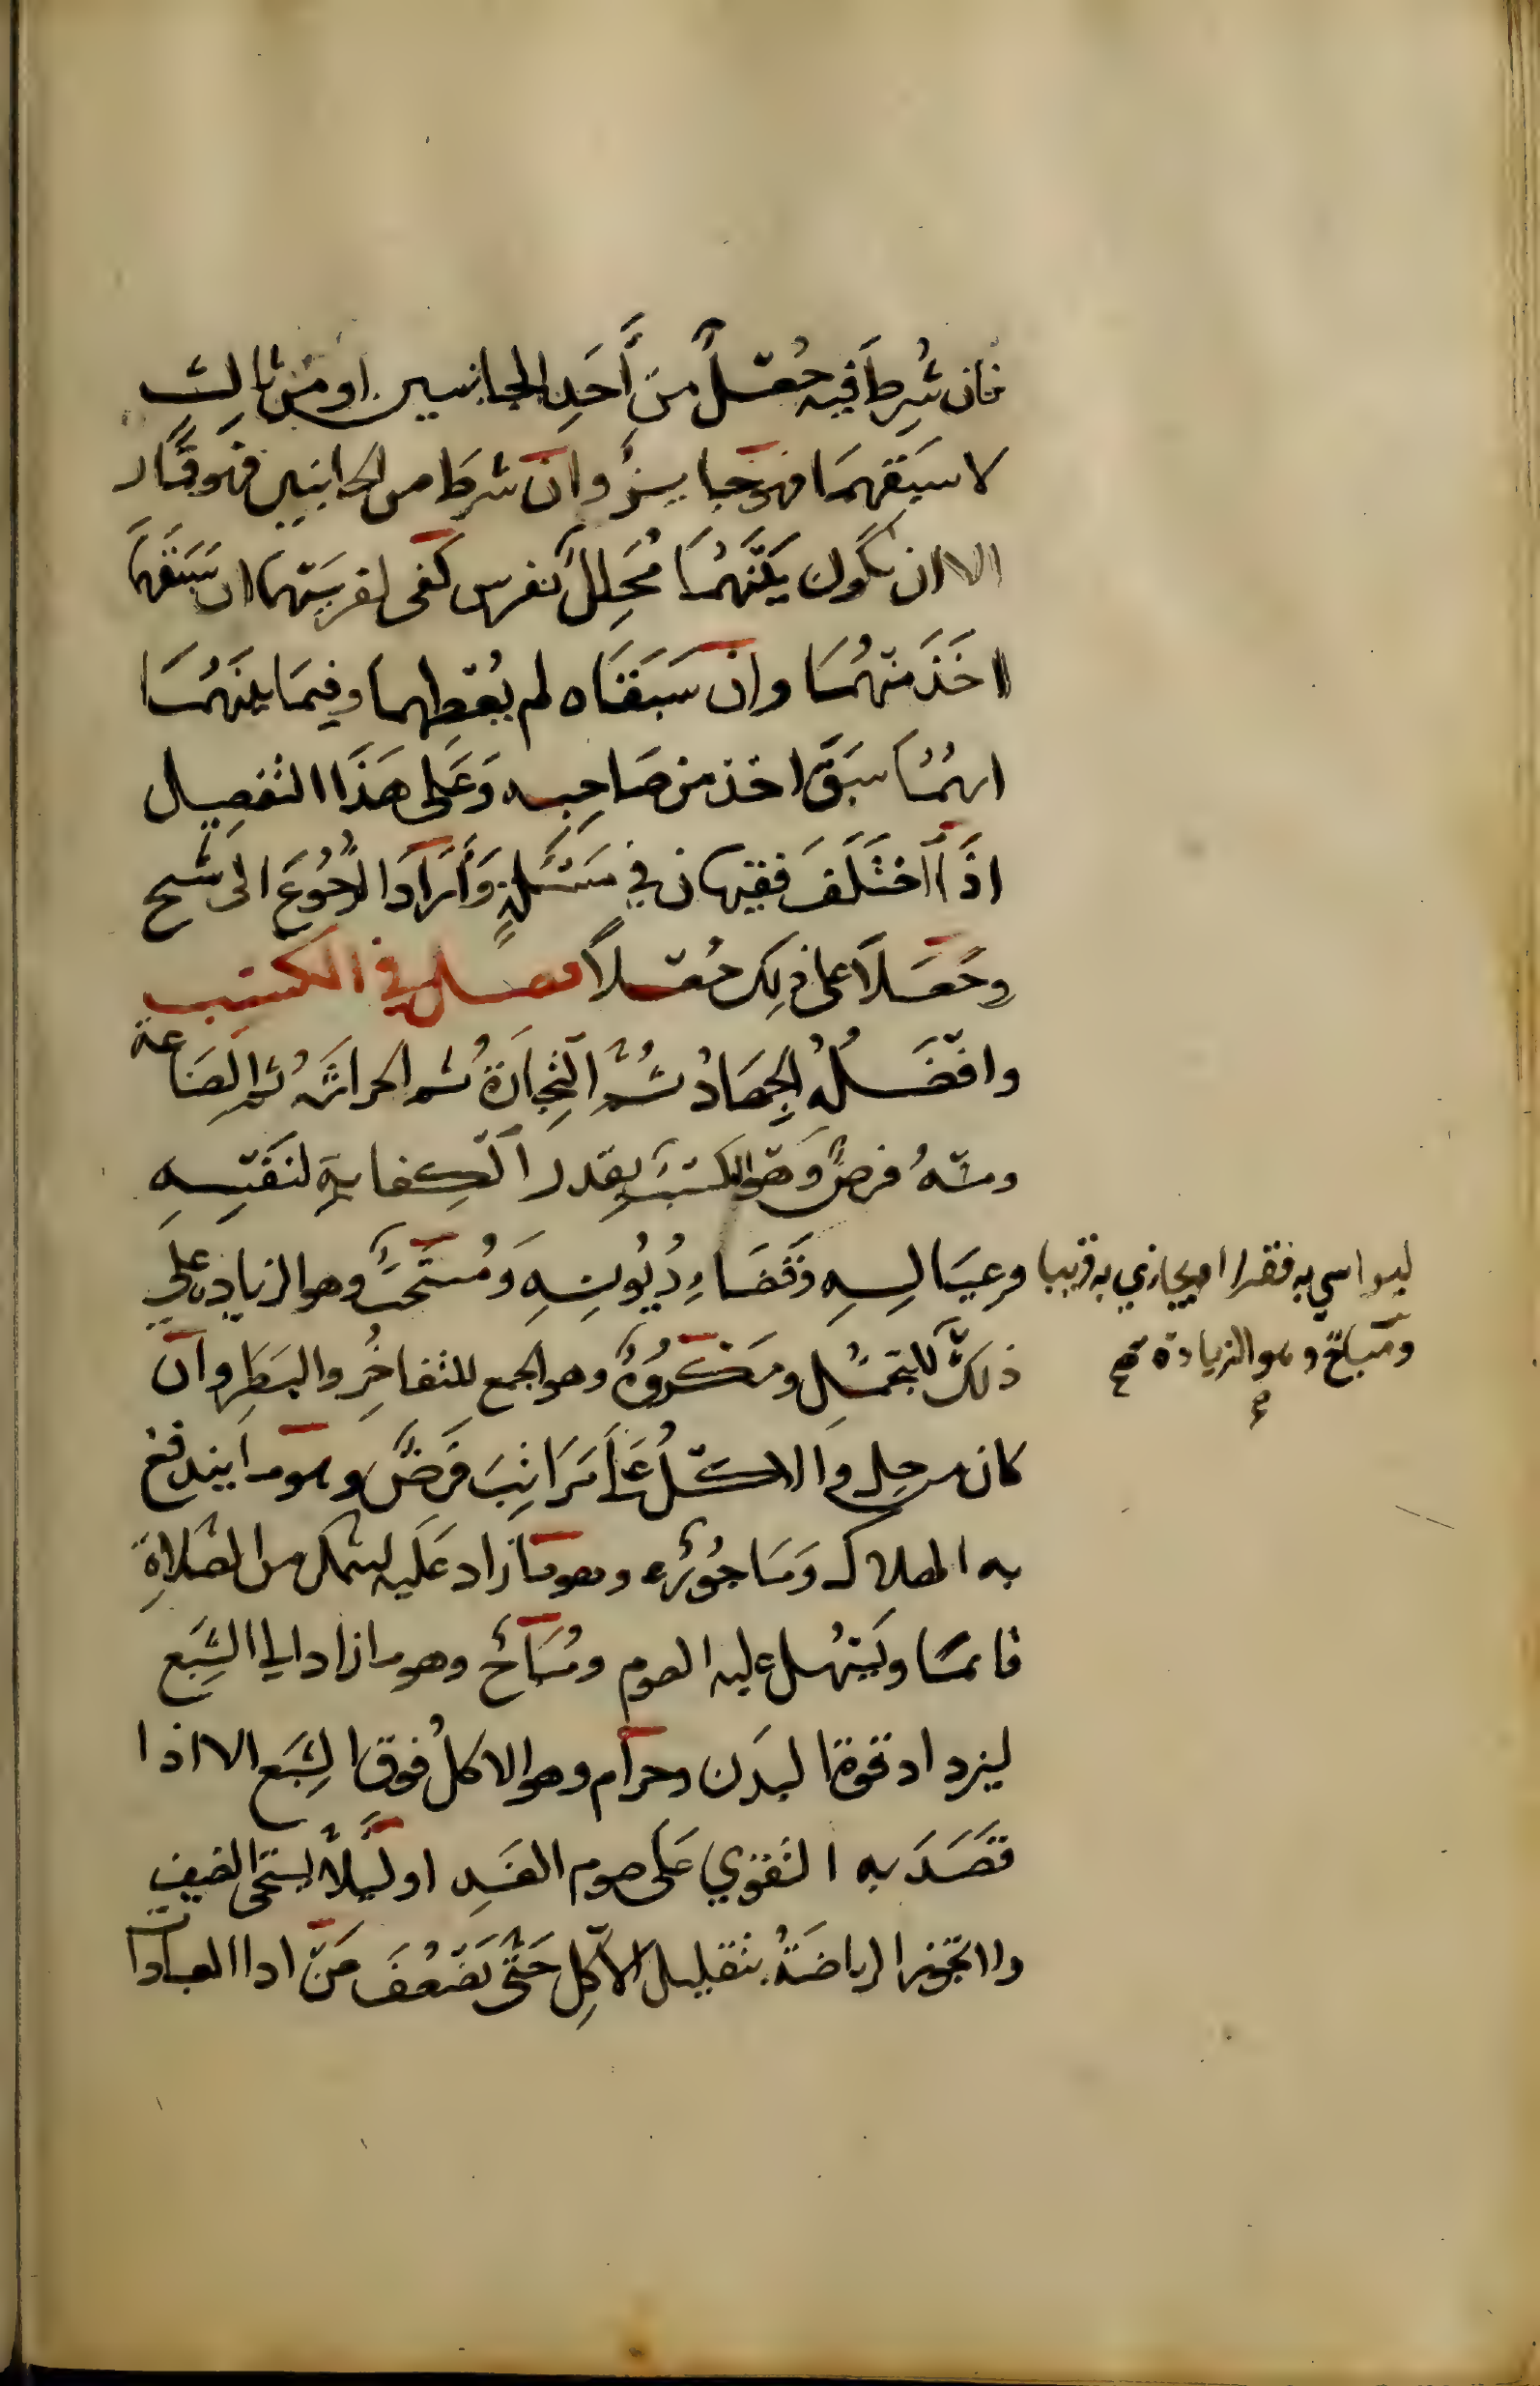 فان شُرِطَ فيه جُعْلٌ من أَحَدِ الجانبين او من ثالثٍ
لاسبقهما فهو جايزٌ وان شرط من الجانبين فهو قمار
الا ان يكون بَيْنَهُمَا مُحَلِّلٌ بفرس كفى لفرسَيْهما ان سَبَقَهُمَا
اخَذَ منْهُمَا وان سَبَقَاه لم يُعْطِهما وفيما بينهُمَا
ايهُمَا سَبَقَ اخذ من صَاحِبِه وَعَلى هَذَا التفصِيل
اذَا اخْتَلَفَ فقيهان في مَسْئَلَةٍ وَأرَادَا الرُّجُوْعَ الى شيخ
وجَعَلَا على ذلِكَ جُعْلاً فصل في الكسب
وافْضَلُهُ الجِهَادُ ثُمَّ التِّجَارَةُ ثُم الحراثَة ثم الصَنَاعة
ومنْهُ فرضٌ وَهْوَ الكسْبُ بقدر الكِفايةِ لنَفْسِهِ
وعِيَالِهِ وَقَضَاءِ دُيُونِهِ وَمُسْتَحَبٌّ وهو الزيادة على
ليواسي به فقيرا او يجازي به قريبا
ومباح وهو الزيادة صح
ذلك للتجمُّلِ ومَكْرُوْهٌ وهو الجمع للتفاخُرِ والبَطَرِ وان
كان من حِلٍ والاكْلُ عَلَى مَرَاتِبَ فَرْضٌ وهو ما يندفع
به الهلاك ومَاجُوْرٌ وهو ما زاد عَلَيه ليتمكن من الصَلاةِ
قائما ويَسْهُل عليه الصوم ومُبَاحٌ وهو ما زاد الى الشِّبَع
ليزداد قوة البَدَن وحرام وهو الاكلُ فوق الشِبَع الا اذا
قَصَدَ به التقوي عَلى صوم الغَدِ او لِيَلَّا يستحى الضيف
ولا تجوز الرياضَةُ بتقليل الاكلِ حَتَّى يَضْعُفَ عَنْ ادا العبادات